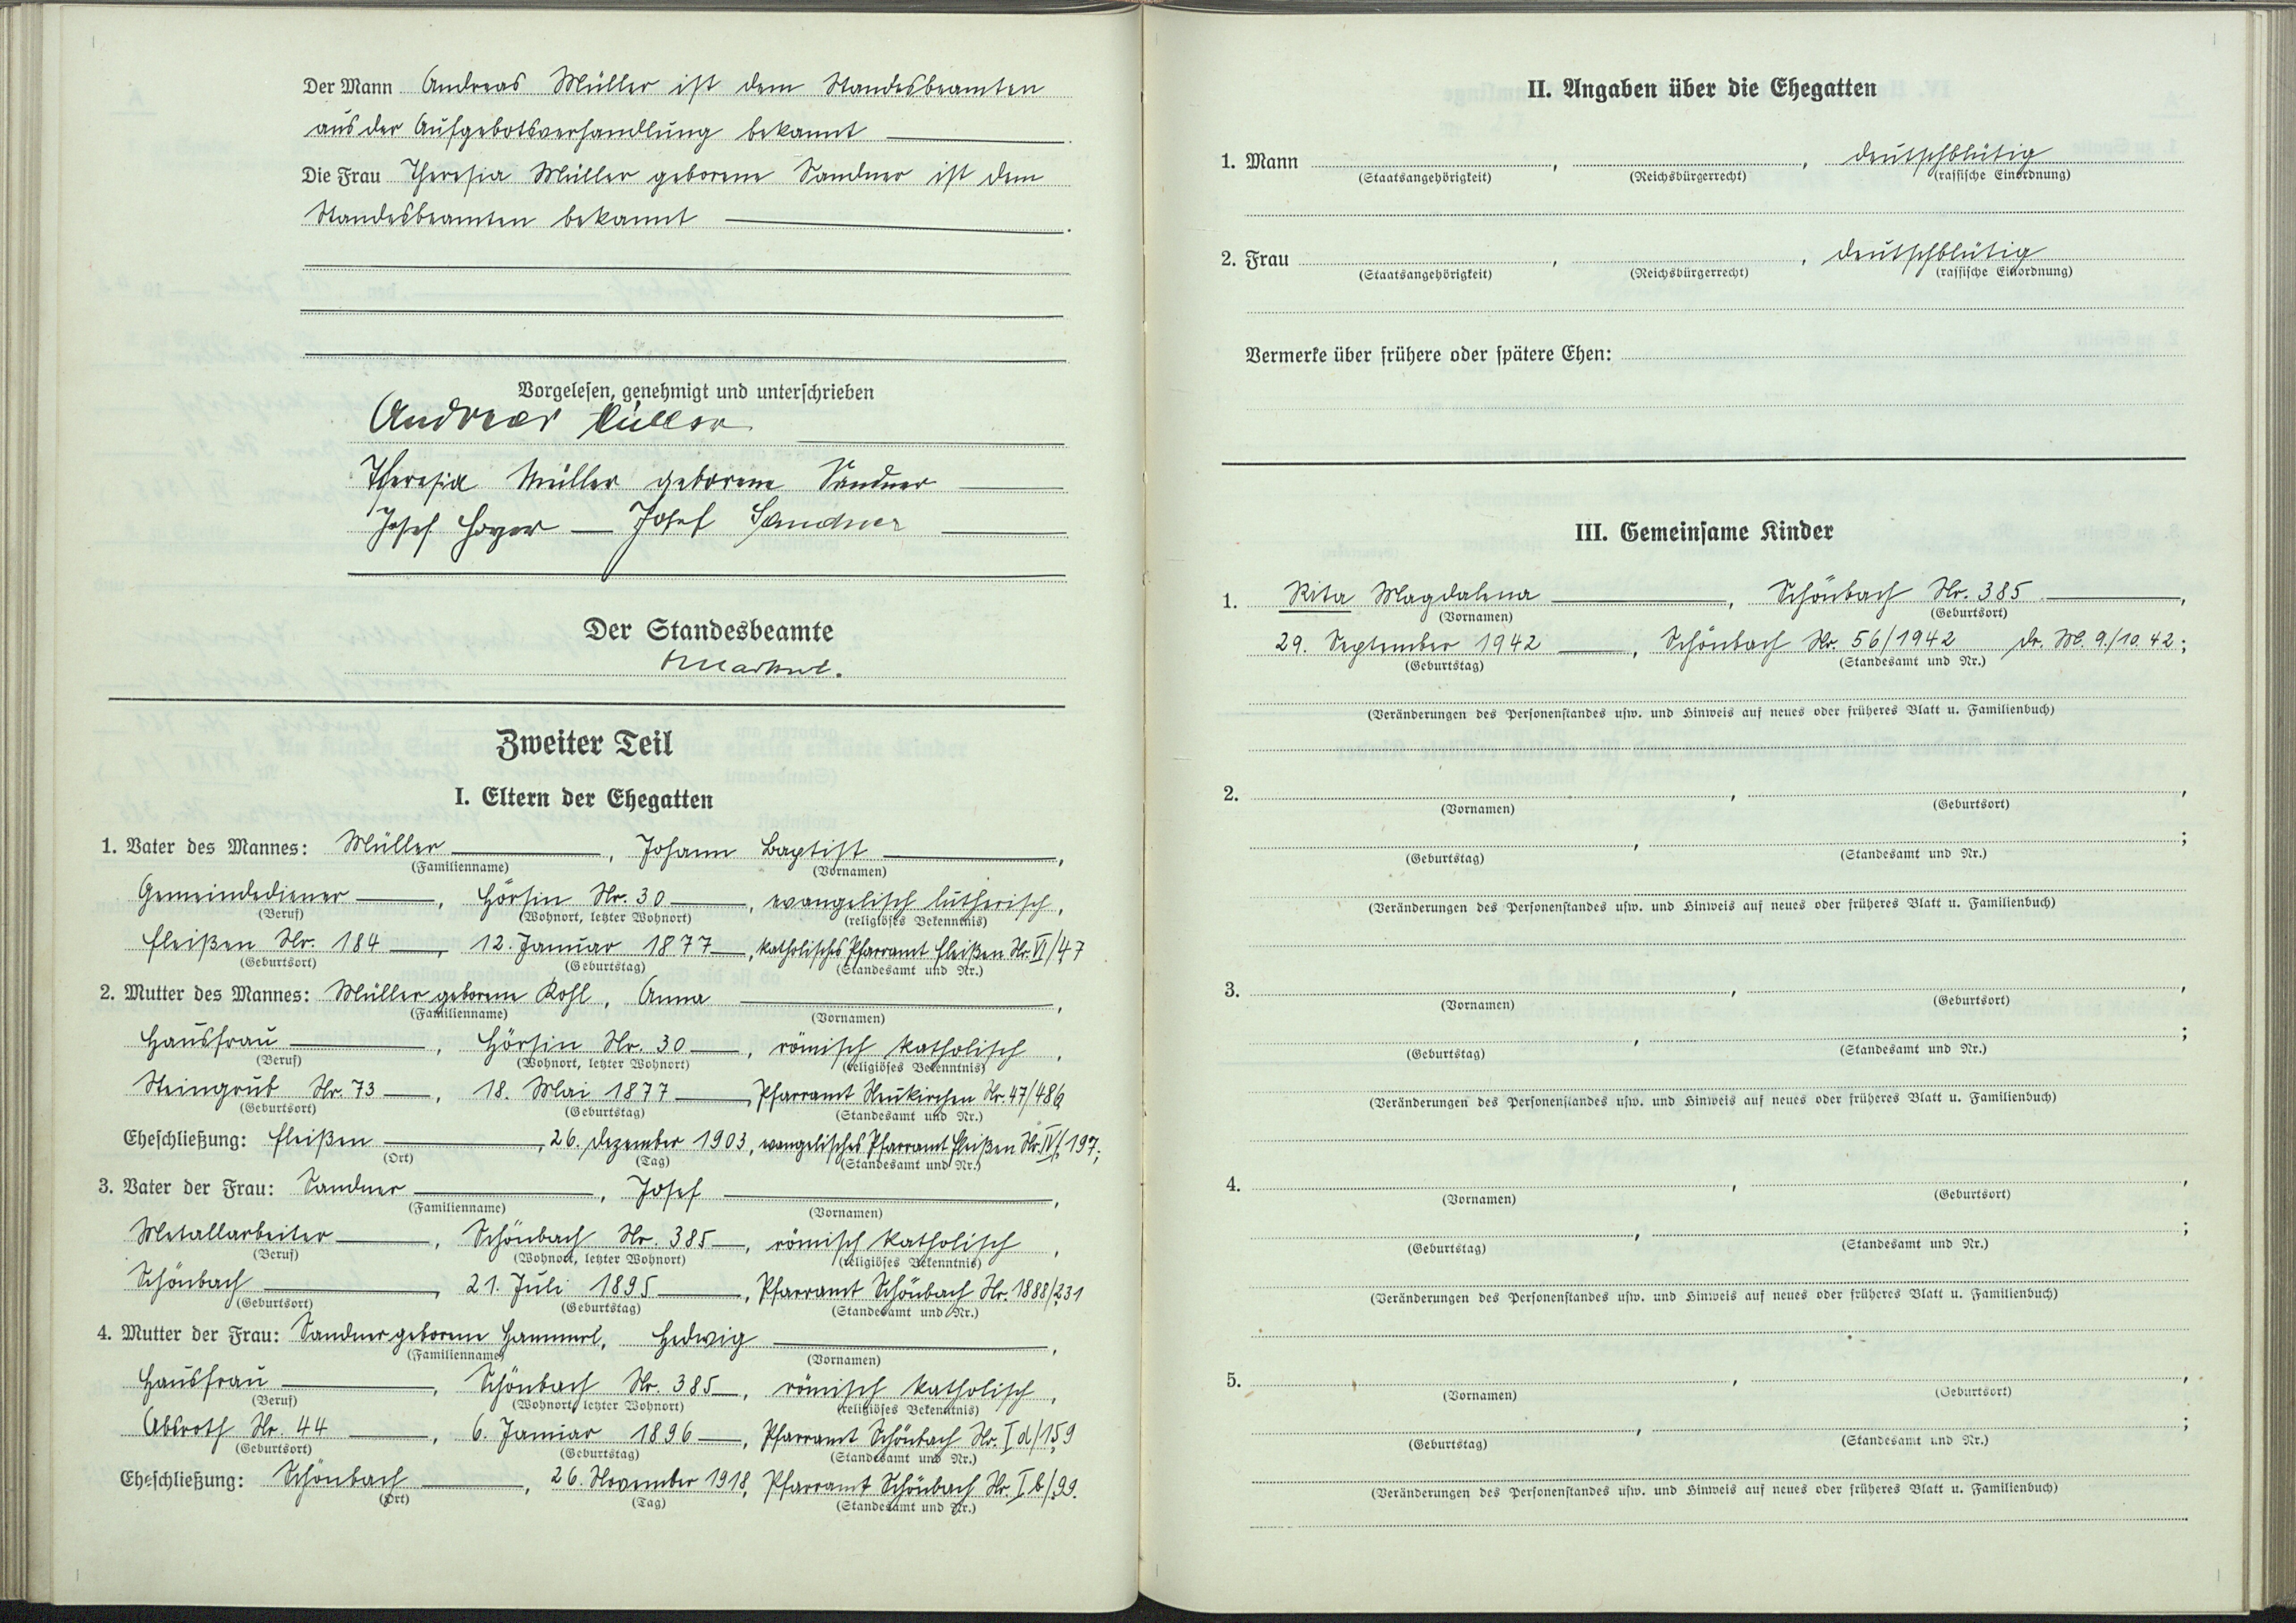 Der Mann Andreas Müller ist dem Standesbeamten
aus der Aufgebotsverhandlung bekannt
Die Frau Theresia Müller geborene Sandner ist dem
Standesbeamten bekannt
Vorgelesen, genehmigt und unterschrieben
Andreas Müller
Theresia Müller geborene Sandner
Josef Hoyer — Josef Sandner
Der Standesbeamte
Zweiter Teil
I. Eltern der Ehegatten
1. Vater des Mannes: Müller, Johann Baptist,
(Familienname) (Vornamen)
Gemeindediener, Hörsin Nr. 30, evangelisch lutherisch,
(Beruf) (Wohnort, letzter Wohnort) (religiöses Bekenntnis)
Fleißen Nr. 184, 12. Januar 1877, katholisches Pfarramt Fleißen Nr. VI/47
(Geburtsort) (Geburtstag) (Standesamt und Nr.)
2. Mutter des Mannes: Müller geborene Kohl, Anna,
(Familienname) (Vornamen)
Hausfrau, Hörsin Nr. 30, römisch katholisch,
(Beruf) (Wohnort, letzter Wohnort) (religiöses Bekenntnis)
Steingrub Nr. 73, 18. Mai 1877, Pfarramt Neukirchen Nr. 47/486
(Geburtsort) (Geburtstag) (Standesamt und Nr.)
Eheschließung: Fleißen, 26. Dezember 1903, evangelisches Pfarramt Fleißen Nr. IV/197;
(Ort) (Tag) (Standesamt und Nr.)
3. Vater der Frau: Sandner, Josef,
(Familienname) (Vornamen)
Metallarbeiter, Schönbach Nr. 385, römisch katholisch,
(Beruf) (Wohnort, letzter Wohnort) (religiöses Bekenntnis)
Schönbach, 21. Juli 1895, Pfarramt Schönbach Nr. 1888/231
(Geburtsort) (Geburtstag) (Standesamt und Nr.)
4. Mutter der Frau: Sandner geborene Hammerl, Hedwig,
(Familienname) (Vornamen)
Hausfrau, Schönbach Nr. 385, römisch katholisch,
(Beruf) (Wohnort, letzter Wohnort) (religiöses Bekenntnis)
Absroth Nr. 44, 6. Januar 1896, Pfarramt Schönbach Nr. I d/159
(Geburtsort) (Geburtstag) (Standesamt und Nr.)
Eheschließung: Schönbach, 26. November 1918, Pfarramt Schönbach Nr. I b/99.
(Ort) (Tag) (Standesamt und Nr.)
II. Angaben über die Ehegatten
1. Mann , , deutschblütig
(Staatsangehörigkeit) (Reichsbürgerrecht) (rassische Einordnung)
2. Frau , , deutschblütig
(Staatsangehörigkeit) (Reichsbürgerrecht) (rassische Einordnung)
Vermerke über frühere oder spätere Ehen:
III. Gemeinsame Kinder
1. Rita Magdalena, Schönbach Nr. 385,
(Vornamen) (Geburtsort)
29. September 1942, Schönbach Nr. 56/1942 dr. M. 9./10. 42;
(Geburtstag) (Standesamt und Nr.)
(Veränderungen des Personenstandes usw. und Hinweis auf neues oder früheres Blatt u. Familienbuch)
2. , ,
(Vornamen) (Geburtsort)
, ;
(Geburtstag) (Standesamt und Nr.)
(Veränderungen des Personenstandes usw. und Hinweis auf neues oder früheres Blatt u. Familienbuch)
3. , ,
(Vornamen) (Geburtsort)
, ;
(Geburtstag) (Standesamt und Nr.)
(Veränderungen des Personenstandes usw. und Hinweis auf neues oder früheres Blatt u. Familienbuch)
4. , ,
(Vornamen) (Geburtsort)
, ;
(Geburtstag) (Standesamt und Nr.)
(Veränderungen des Personenstandes usw. und Hinweis auf neues oder früheres Blatt u. Familienbuch)
5. , ,
(Vornamen) (Geburtsort)
, ;
(Geburtstag) (Standesamt und Nr.)
(Veränderungen des Personenstandes usw. und Hinweis auf neues oder früheres Blatt u. Familienbuch)